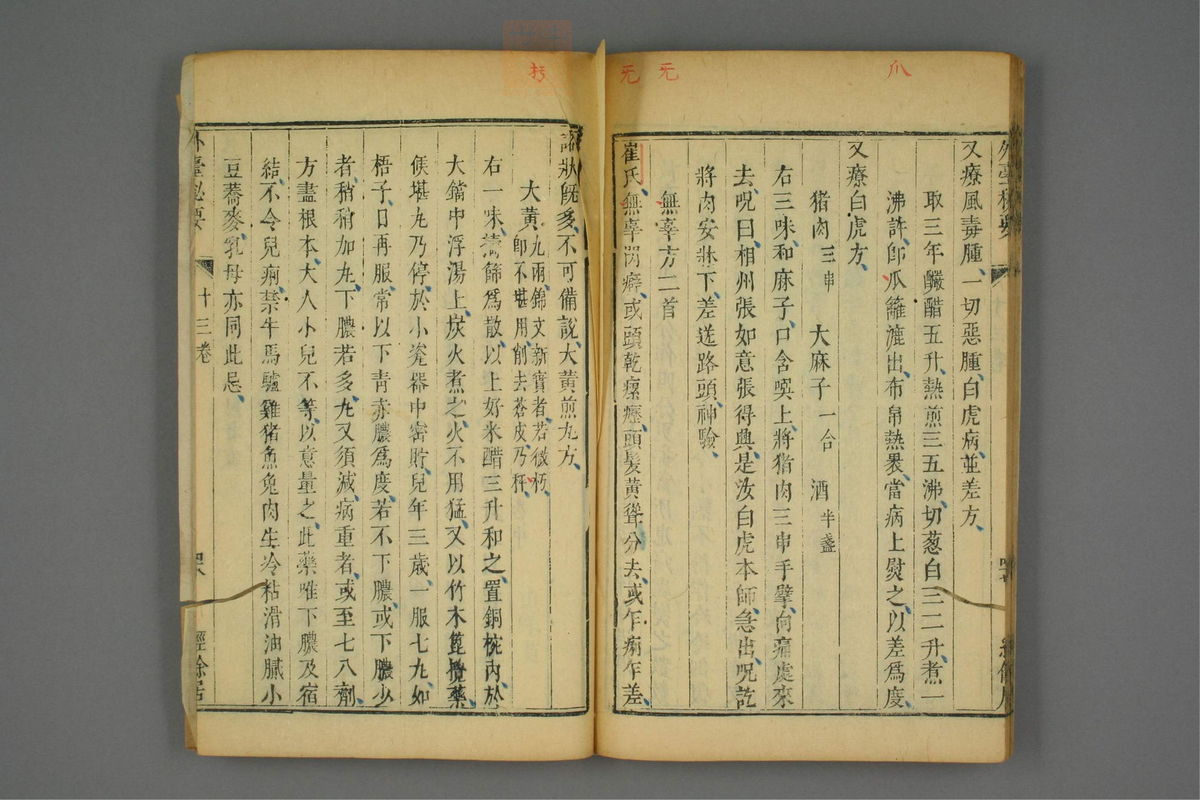 爪
无
无
朽
外臺秘要
又療風毒腫一切惡腫白虎病並差方
取三年釅醋五升熱煎三五沸切葱白三二升煮一
沸許即爪籬漉出布帛熱裹當病上熨之以差爲度
又療白虎方
猪肉三串 大麻子一合 酒半盞
右三味和麻子口含噀上將猪肉三串手擘向痛處來
去呪曰相州張如意張得興是汝白虎本師急出呪訖
將肉安牀下差送路頭神驗
無辜方二首
崔氏無辜閃癖或頭乾瘰癧頭髮黃聳分去或乍痢乍差
諸狀既多不可備說大黃煎丸方
大黃九兩錦文新實者若微朽
即不堪用削去蒼皮乃秤
右一味擣篩爲散以上好米醋三升和之置銅椀內於
大鐺中浮湯上炭火煮之火不用猛又以竹木篦攪藥
候堪丸乃停於小瓷器中密貯兒年三歲一服七丸如
梧子日再服常以下青赤膿爲度若不下膿或下膿少
者稍稍加丸下膿若多丸又須減病重者或至七八劑
方盡根本大人小兒不等以意量之此藥唯下膿及宿
結不令兒痢禁牛馬驢雞猪魚兔肉生冷粘滑油膩小
豆蕎麥乳母亦同此忌
外臺秘要 十三卷 經餘居